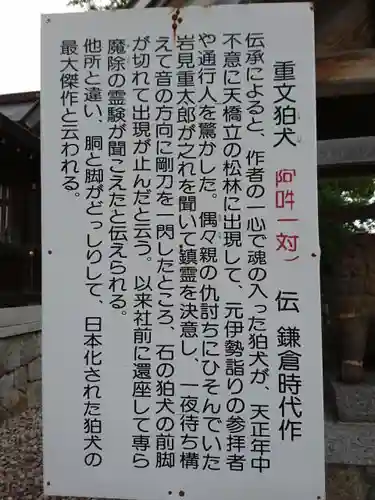 重文狛犬（阿吽一対） 伝 鎌倉時代作
伝承によると、作者の一心で魂の入った狛犬が、天正年中
不意に天橋立の松林に出現して、元伊勢詣りの参拝者
や通行人を驚かした。偶々親の仇討ちにひそんでいた
岩見重太郎が之れを聞いて鎮霊を決意し、一夜待ち構
えて音の方向に剛刀を一閃したところ、石の狛犬の前脚
が切れて出現が止んだと云う。以来社前に還座して専ら
魔除の霊験が聞こえたと伝えられる。
他所と違い、胴と脚がどっしりして、日本化された狛犬の
最大傑作と云われる。